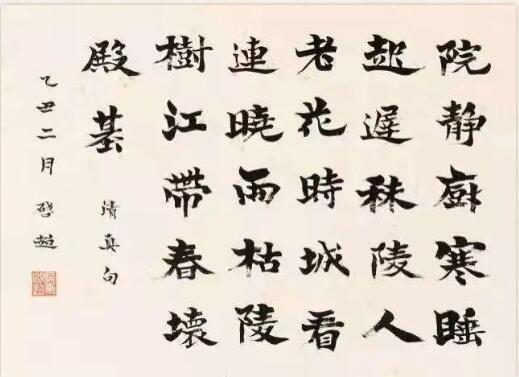 院靜廚寒睡
起遲秣陵人
老花時城看
連曉雨枯陵
樹江帶春壞
殿基
清真句
乙丑二月 啓超